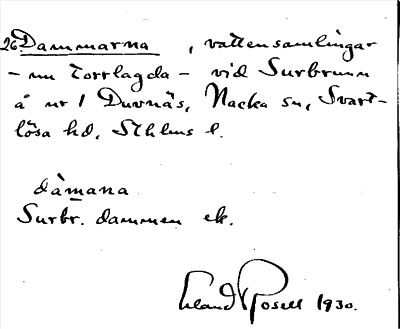 26. Dammarna, vattensamlingar
- nu torrlagda - vid Surbrunn
å nr 1 Duvnäs, Nacka sn, Svart-
lösa hd, Sthlms l.
dàmana
Surbr. dammen ek.
Erland Rosell 1930.